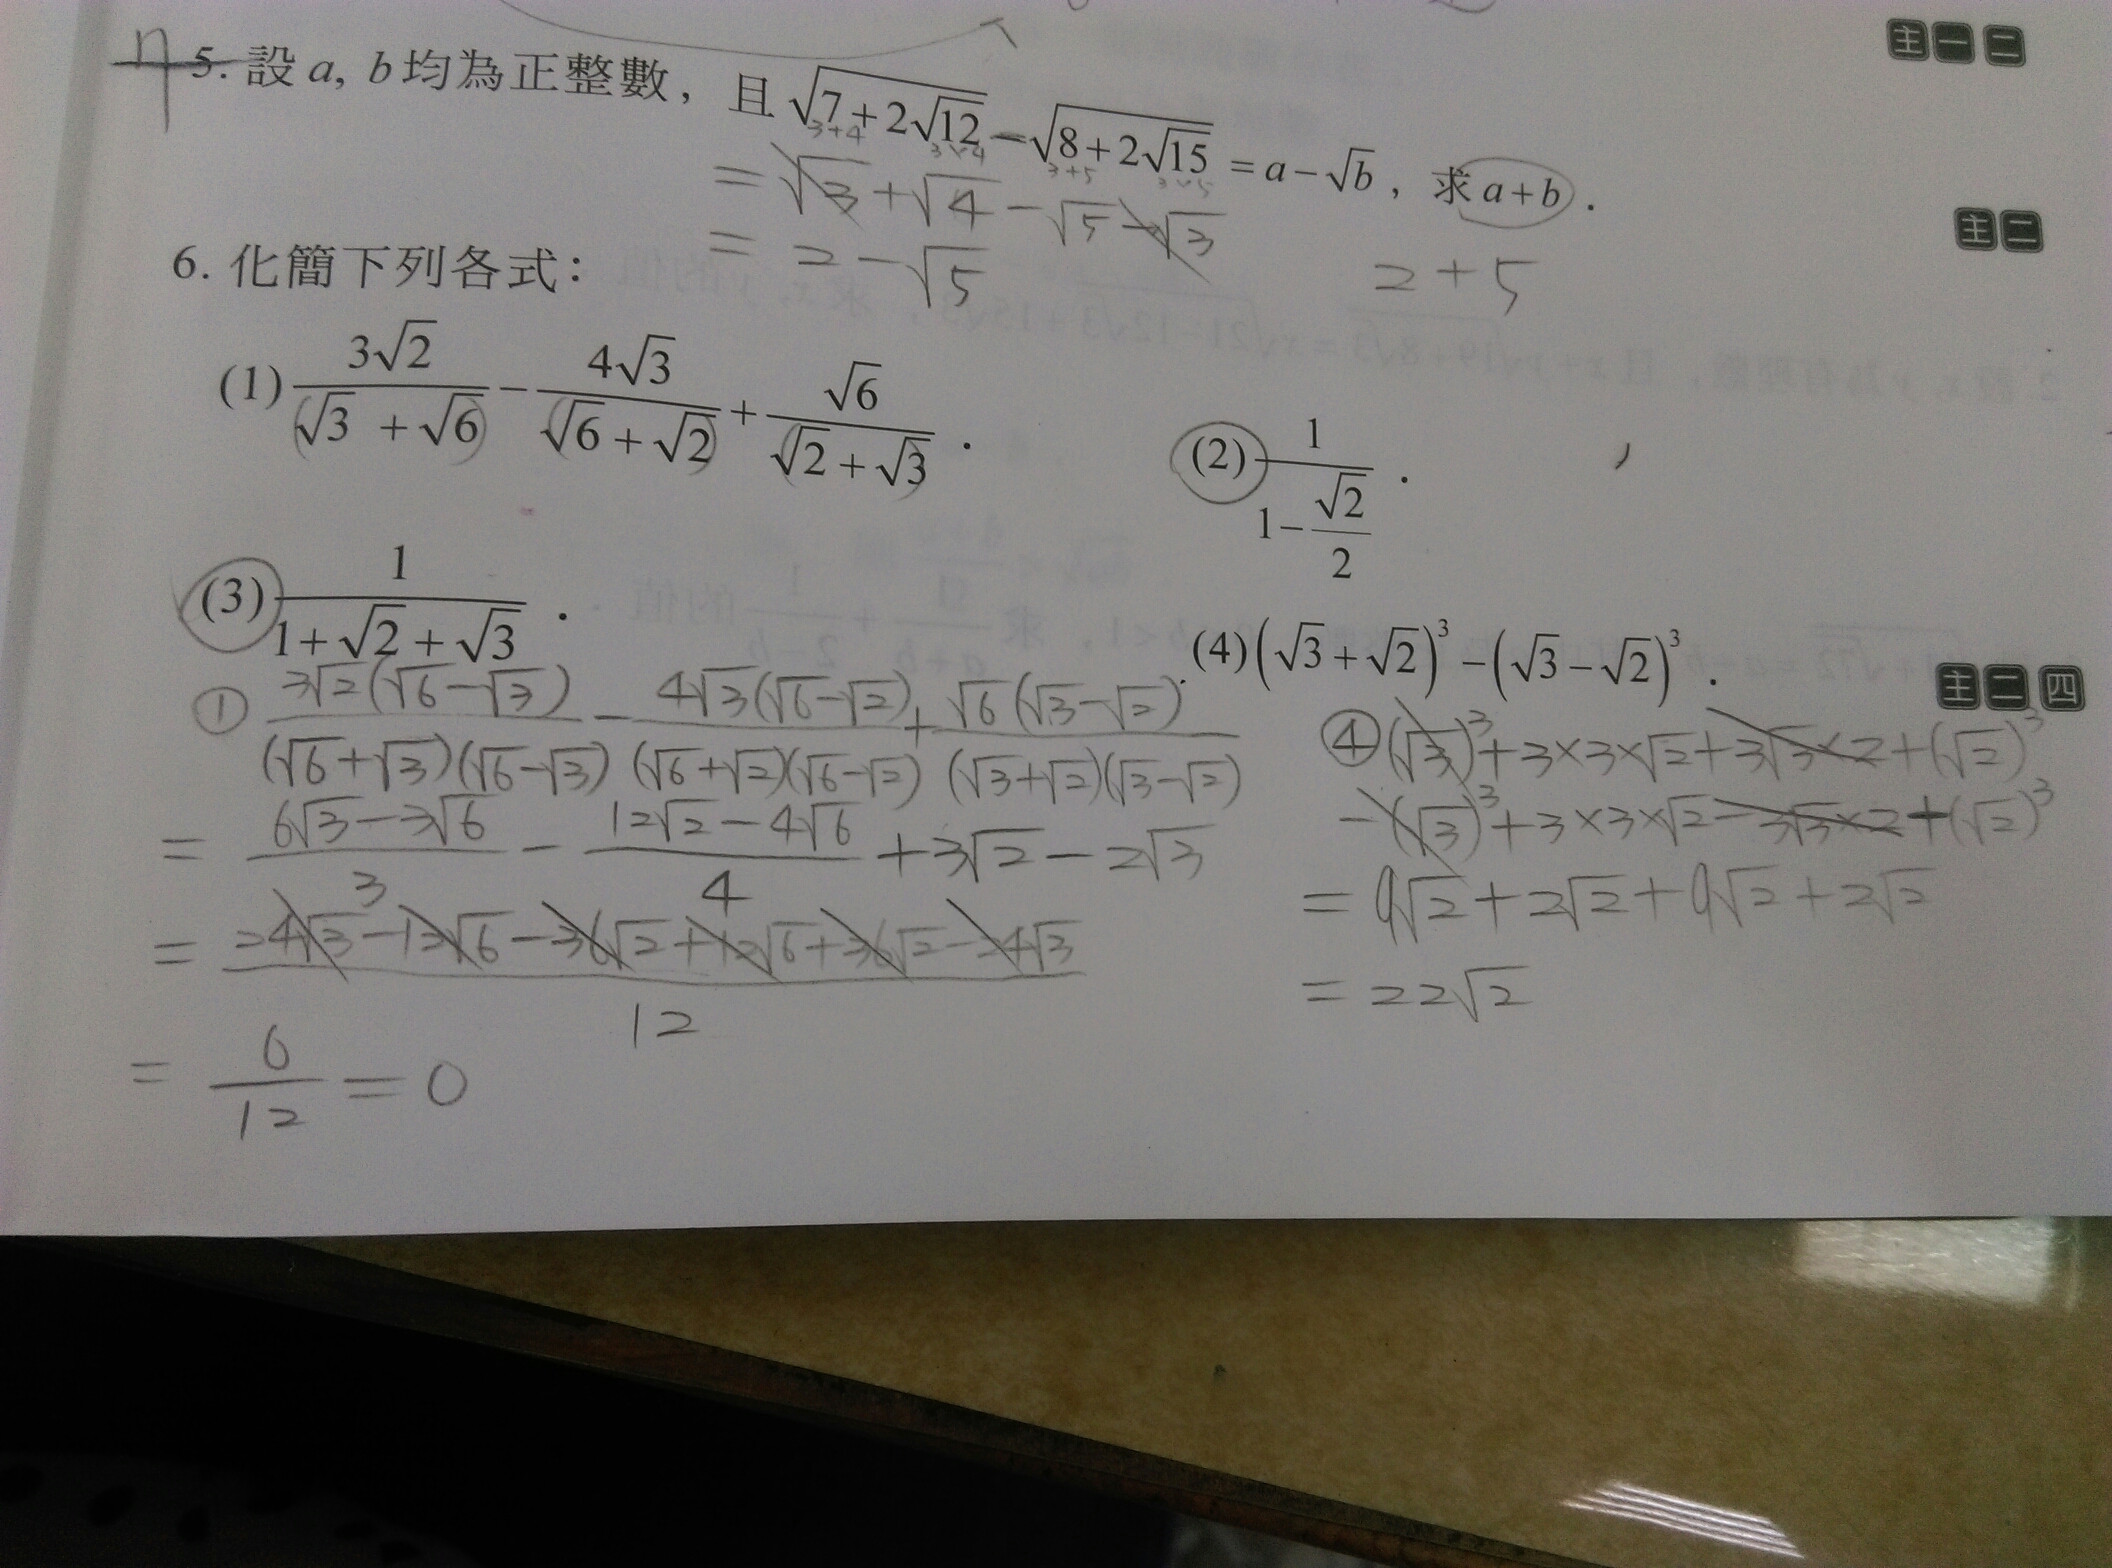 主 一 二
7 5. 設 a, b 均為正整數，且 √(7+2√12) − √(8+2√15) = a − √b，求 a+b．
3+4 3×4 3+5 3×5
= √3 + √4 − √5 − √3
主 二
= 2 − √5 2+5
6. 化簡下列各式：
(1) 3√2/(√3+√6) − 4√3/(√6+√2) + √6/(√2+√3)．
(2) 1/(1−√2/2)．
(3) 1/(1+√2+√3)．
(4) (√3+√2)³ − (√3−√2)³．
主 二 四
① 3√2(√6−√3)/(√6+√3)(√6−√3) − 4√3(√6−√2)/(√6+√2)(√6−√2) + √6(√3−√2)/(√3+√2)(√3−√2)
= (6√3−3√6)/3 − (12√2−4√6)/4 + 3√2 − 2√3
= (24√3−12√6−36√2+12√6+36√2−24√3)/12
= 0/12 = 0
④ (√3)³+3×3×√2+3√3×2+(√2)³
−(√3)³+3×3×√2−3√3×2+(√2)³
= 9√2+2√2+9√2+2√2
= 22√2